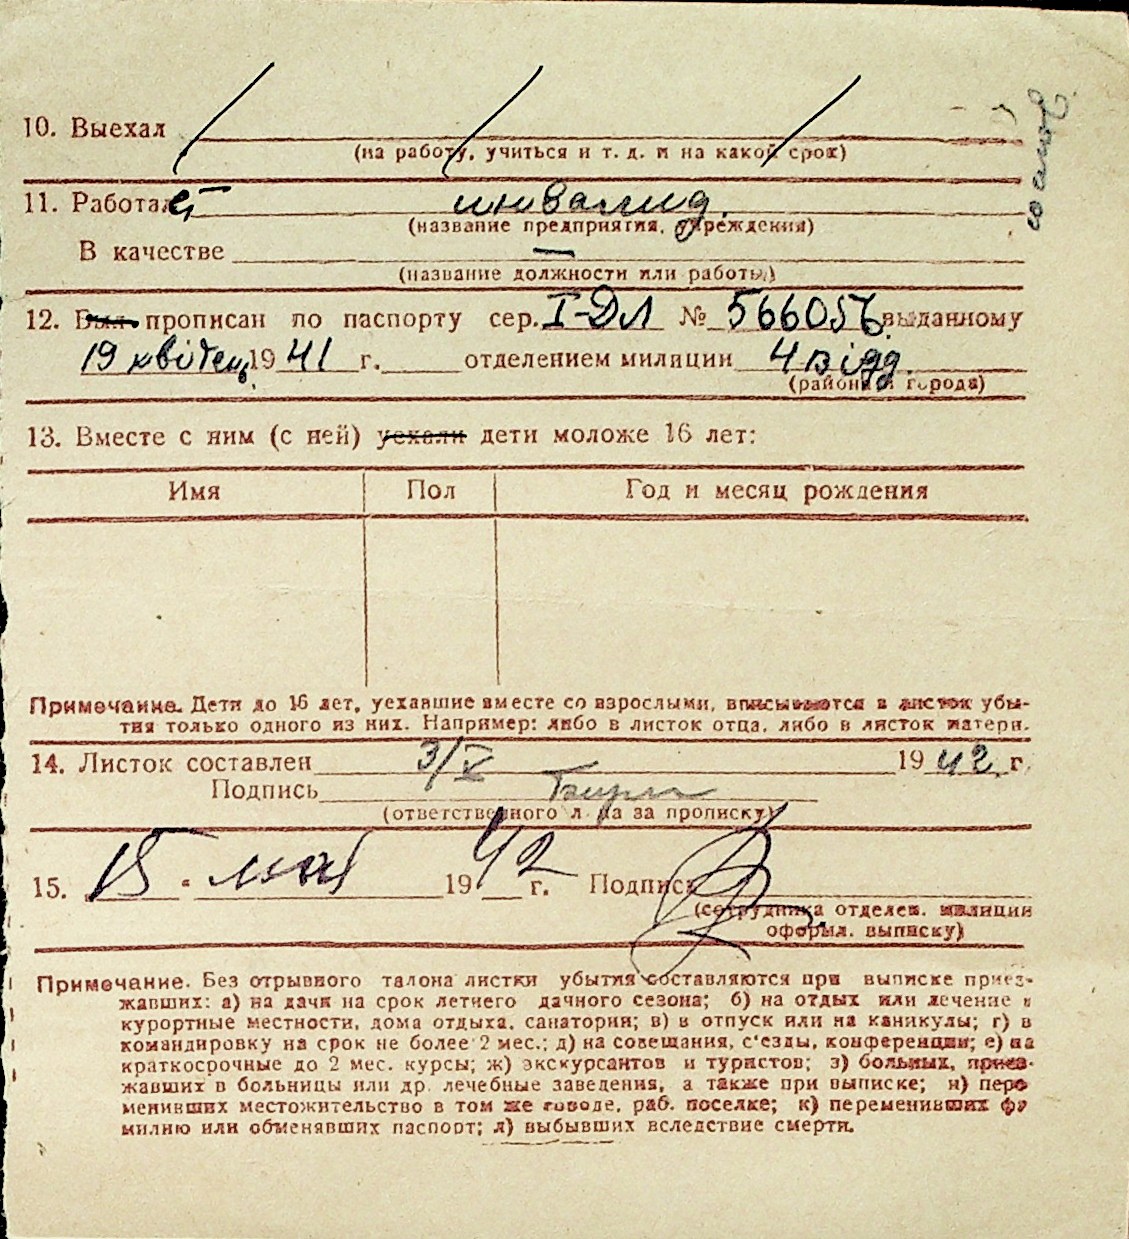 10. Выехал
(на работу, учиться и т. д. и на какой срок)
11. Работает инвалид.
(название предприятия, учреждения)
В качестве —
(название должности или работы)
12. Был прописан по паспорту сер. I-ДЛ № 566056 выданному
19 квітень 1941 г. отделением милиции 4 відд.
(района города)
13. Вместе с ним (с ней) уехали дети моложе 16 лет:
Имя Пол Год и месяц рождения
Примечание. Дети до 16 лет, уехавшие вместе со взрослыми, вписываются в листок убы-
тия только одного из них. Например: либо в листок отца, либо в листок матери.
14. Листок составлен 3/V 1942 г.
Подпись
(ответственного лица за прописку)
15. 15 · мая 1942 г. Подпись
(сотрудника отделен. милиции
оформл. выписку)
Примечание. Без отрывного талона листки убытия составляются при выписке приез-
жавших: а) на дачи на срок летнего дачного сезона; б) на отдых или лечение в
курортные местности, дома отдыха, санатории; в) в отпуск или на каникулы; г) в
командировку на срок не более 2 мес.; д) на совещания, с'езды, конференции; е) на
краткосрочные до 2 мес. курсы; ж) экскурсантов и туристов; з) больных, приез-
жавших в больницы или др. лечебные заведения, а также при выписке; и) пере
менивших местожительство в том же городе, раб. поселке; к) переменивших фа
милию или обменявших паспорт; л) выбывших вследствие смерти.